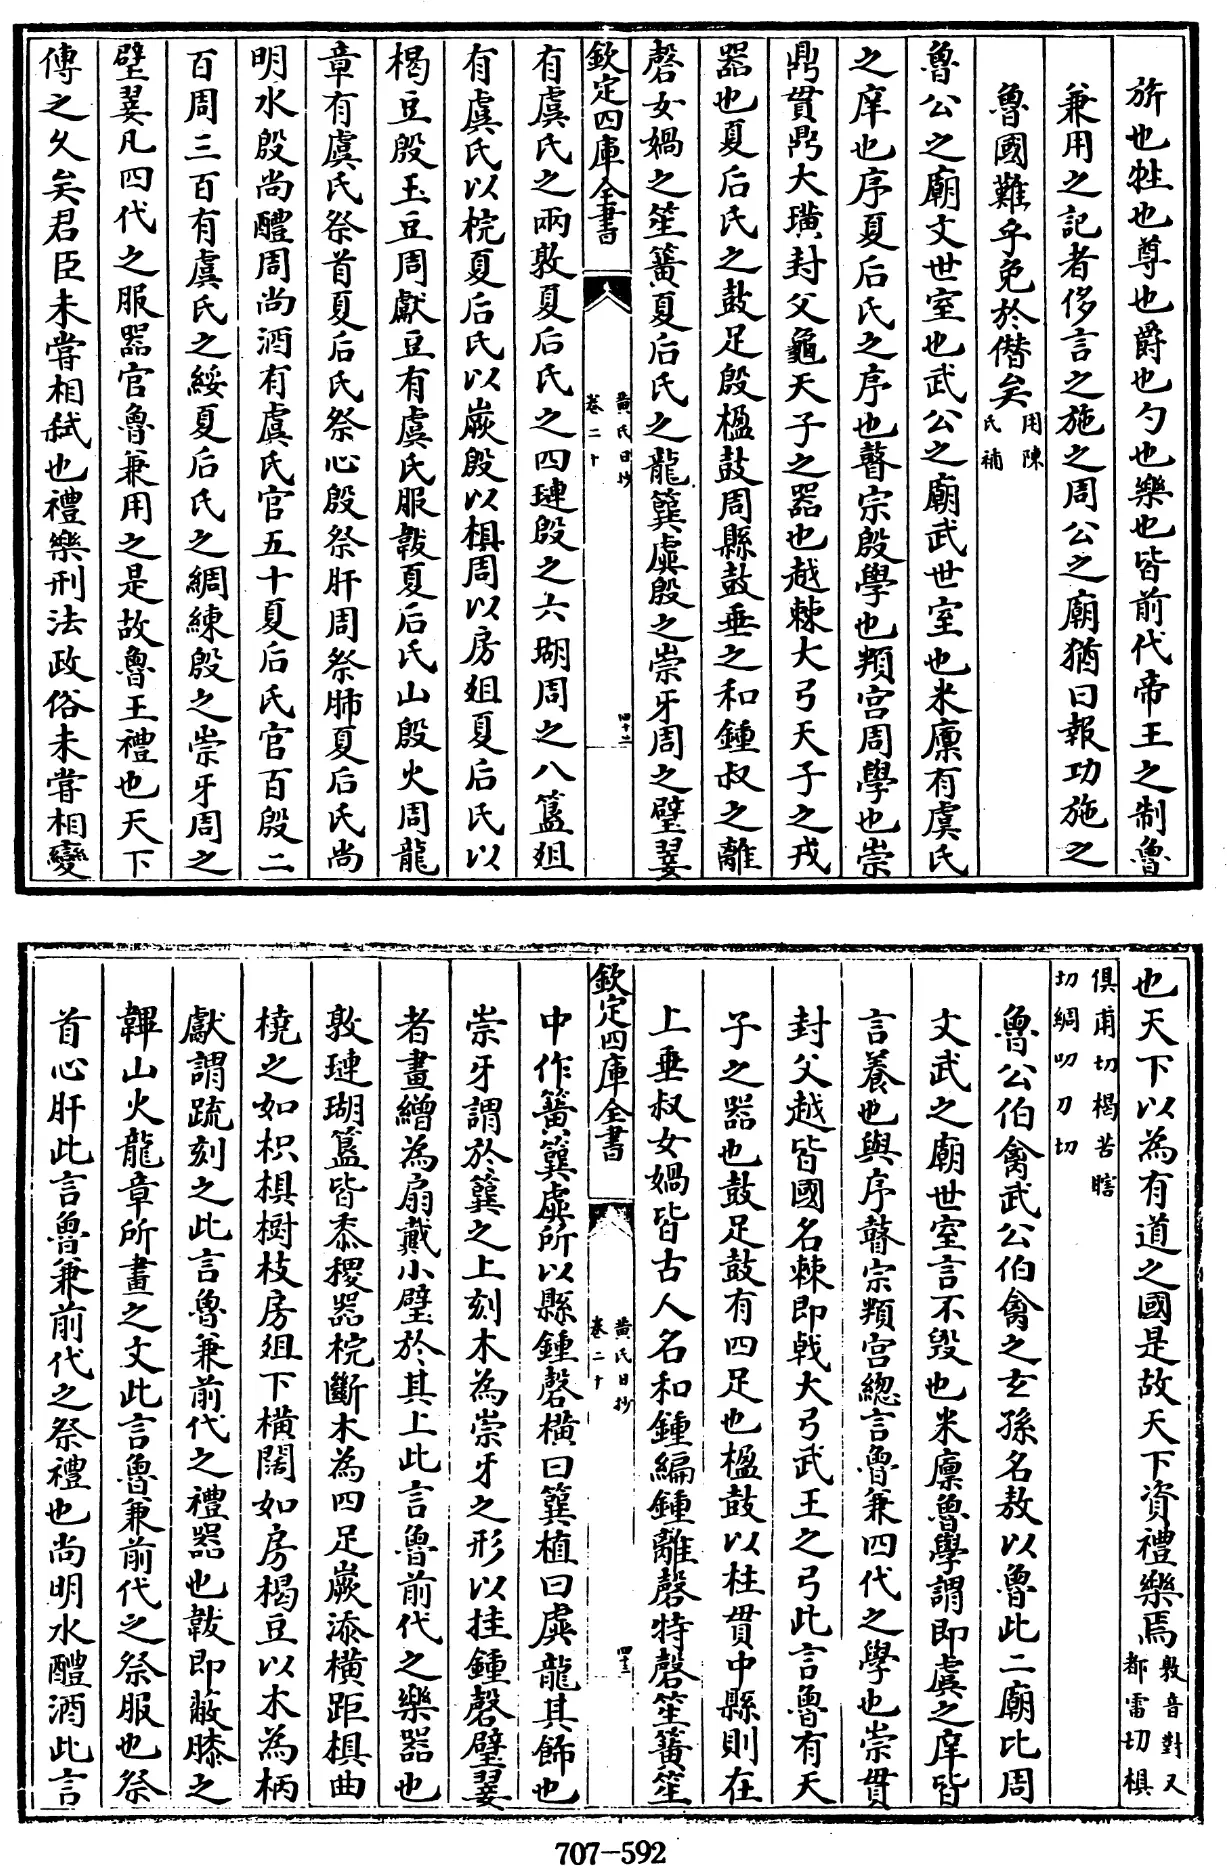 旂也牲也尊也爵也勺也樂也皆前代帝王之制魯
兼用之記者侈言之施之周公之廟猶曰報功施之
魯國難乎免於僭矣用陳氏補
魯公之廟文世室也武公之廟武世室也米廩有虞氏
之庠也序夏后氏之序也瞽宗殷學也頖宮周學也崇
鼎貫鼎大璜封父龜天子之器也越棘大弓天子之戎
器也夏后氏之鼓足殷楹鼓周縣鼓垂之和鍾叔之離
磬女媧之笙簧夏后氏之龍簨虡殷之崇牙周之璧翣
欽定四庫全書
黃氏日抄
卷二十
四十二
有虞氏之兩敦夏后氏之四璉殷之六瑚周之八簋俎
有虞氏以梡夏后氏以嶡殷以椇周以房俎夏后氏以
楬豆殷玉豆周獻豆有虞氏服韍夏后氏山殷火周龍
章有虞氏祭首夏后氏祭心殷祭肝周祭肺夏后氏尚
明水殷尚醴周尚酒有虞氏官五十夏后氏官百殷二
百周三百有虞氏之綏夏后氏之綢練殷之崇牙周之
璧翣凡四代之服器官魯兼用之是故魯王禮也天下
傳之久矣君臣未嘗相弒也禮樂刑法政俗未嘗相變
也天下以為有道之國是故天下資禮樂焉敦音對又都雷切椇
俱甫切楬苦瞎切綢叨刀切
魯公伯禽武公伯禽之玄孫名敖以魯此二廟比周
文武之廟世室言不毀也米廩魯學謂即虞之庠皆
言養也與序瞽宗頖宮總言魯兼四代之學也崇貫
封父越皆國名棘即戟大弓武王之弓此言魯有天
子之器也鼓足鼓有四足也楹鼓以柱貫中縣則在
上垂叔女媧皆古人名和鍾編鍾離磬特磬笙簧笙
欽定四庫全書
黃氏日抄
卷二十
四十三
中作簧簨虡所以縣鍾磬橫曰簨植曰虡龍其飾也
崇牙謂於簨之上刻木為崇牙之形以挂鍾磬璧翣
者畫繒為扇戴小璧於其上此言魯前代之樂器也
敦璉瑚簋皆黍稷器梡斷木為四足嶡添橫距椇曲
橈之如枳椇樹枝房俎下橫闊如房楬豆以木為柄
獻謂疏刻之此言魯兼前代之禮器也韍即蔽膝之
韠山火龍章所畫之文此言魯兼前代之祭服也祭
首心肝此言魯兼前代之祭禮也尚明水醴酒此言
707-592